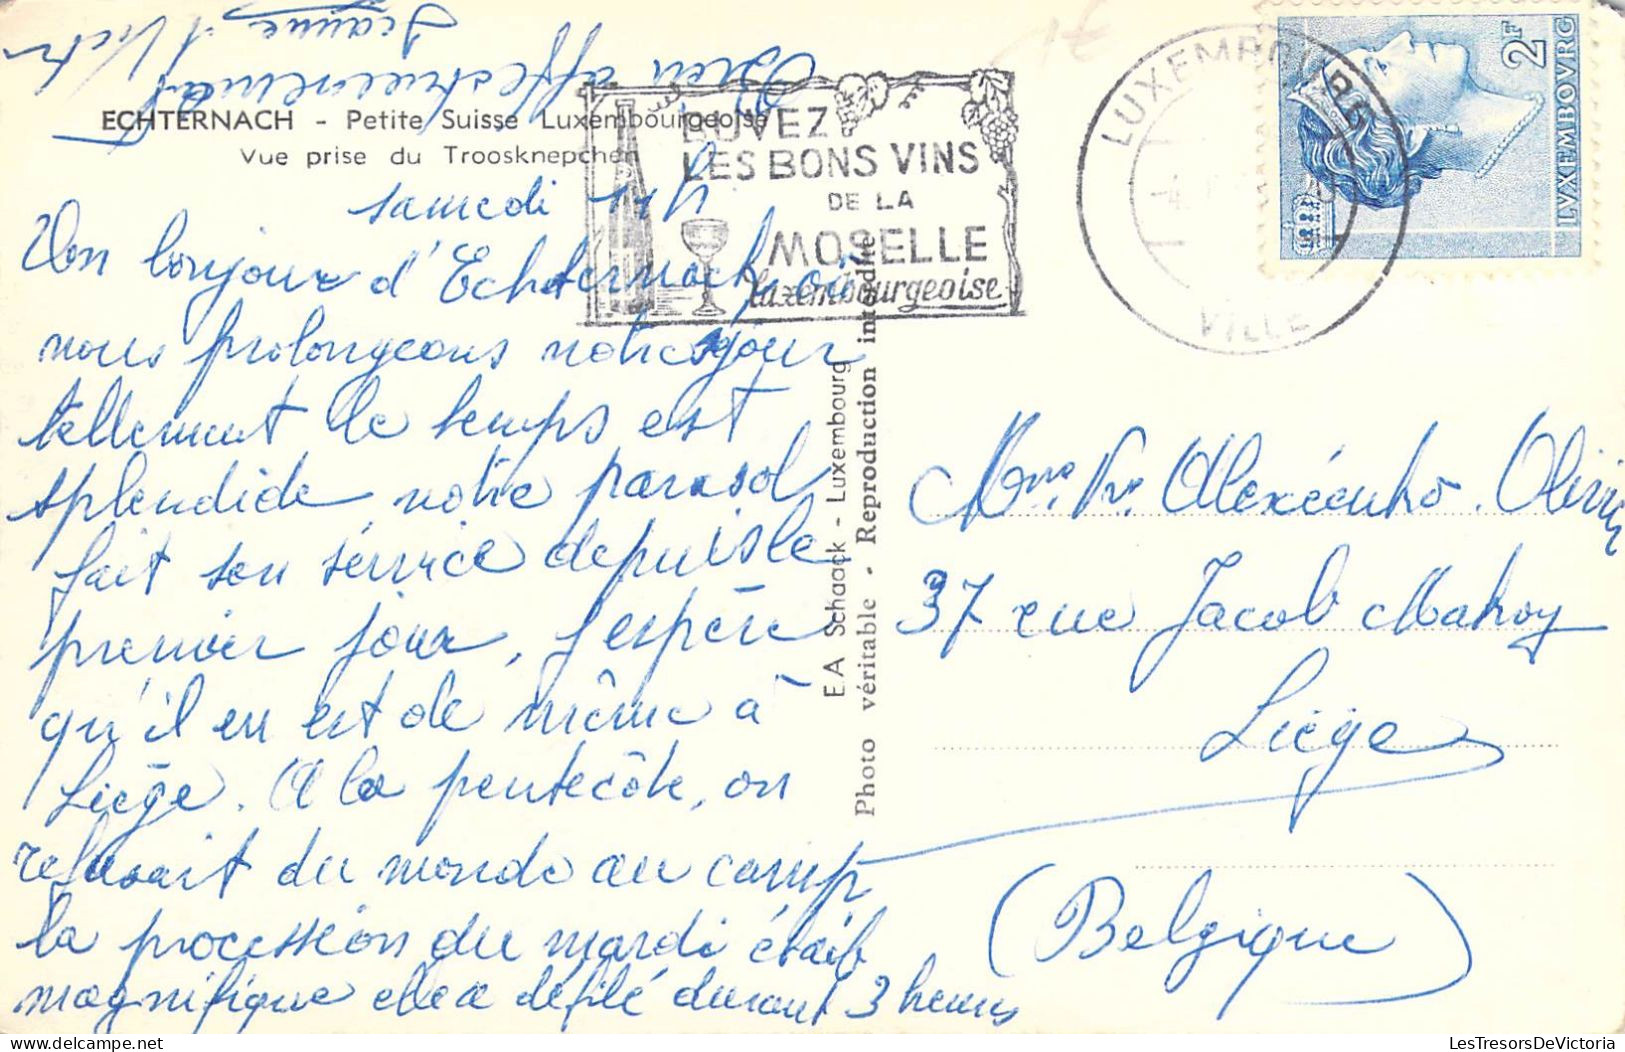 ECHTERNACH - Petite Suisse Luxembourgeoise
Vue prise du Troosknepchen
BUVEZ
LES BONS VINS
DE LA
MOSELLE
luxembourgeoise
LUXEMBOURG
VILLE
2F
LVXEMBOVRG
samedi
Un bonjour d'Echternach où
nous prolongeons notre séjour
tellement le temps est
splendide notre parasol
fait son service depuis le
premier jour, j'espère
qu'il en est de même à
Liège. A la pentecôte, on
refusait du monde au camp
la procession du mardi était
magnifique elle a défilé durant 3 heures
Bien affectueusement
Jeanne
E.A Schaack - Luxembourg
Photo véritable - Reproduction interdite
Mme Vve Olivier
37 rue Jacob Mahoy
Liège
(Belgique)
LesTresorsDeVictoria